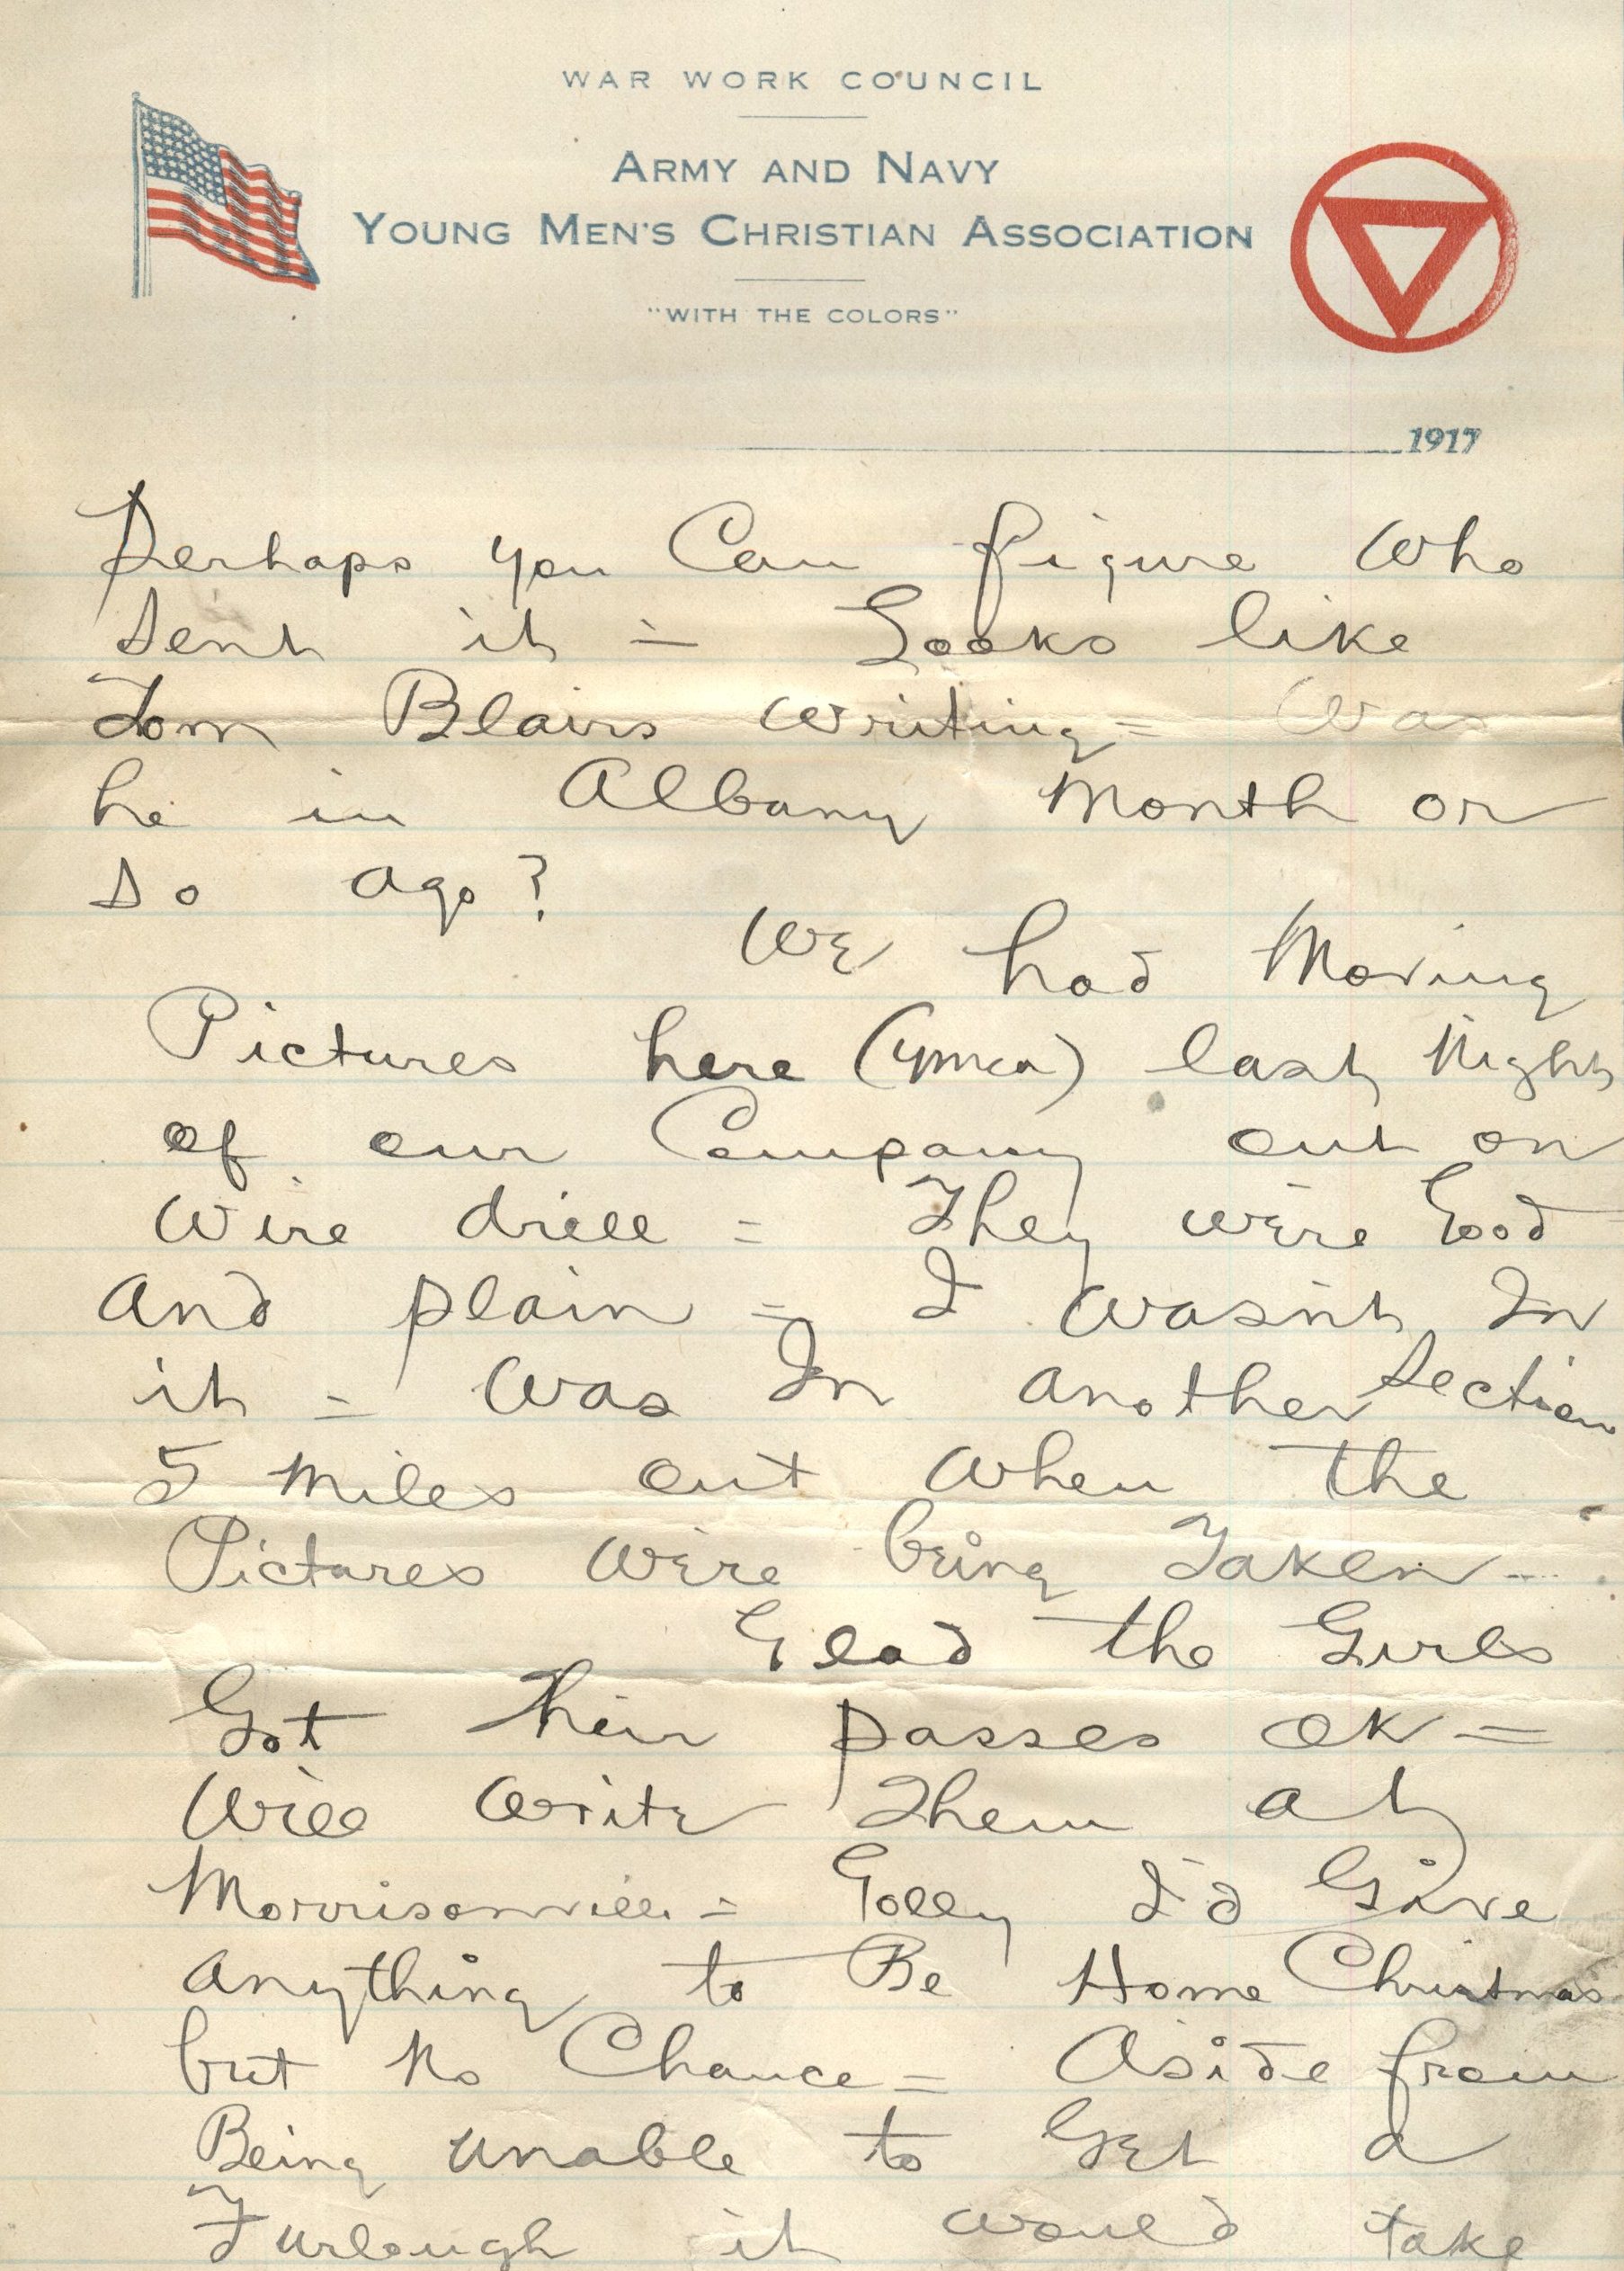 WAR WORK COUNCIL
ARMY AND NAVY
YOUNG MEN'S CHRISTIAN ASSOCIATION
"WITH THE COLORS"
1917
Perhaps you Can figure Who
Sent it = Looks like
Tom Blairs Writing = Was
he in Albany Month or
So ago?
We had Moving
Pictures here (ymca) last Night
of our Company out on
Wire drill = They were Good
And plain = I Wasn't In
it = Was In another Section
5 Miles out When the
Pictures Were being Taken --
Glad the Girls
Got their passes OK =
Will Write Them at
Morrisonville = Golly I'd Give
anything to Be Home Christmas
but No Chance = Aside from
Being unable to Get a
Furlough it would take